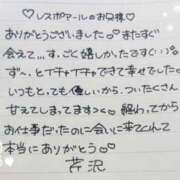 ♡レスポアールのお兄様♡
ありがとうございました♡またすぐ
会えて…す。ごく嬉しかったです♡
ず〜、とイチャイチャできて幸せでした♡
いつもとても優しいから、ついたくさん
甘えてしまってます>< 終わってから
お仕事だったのに会いに来てくれて
本当にありがとう♡
芹沢